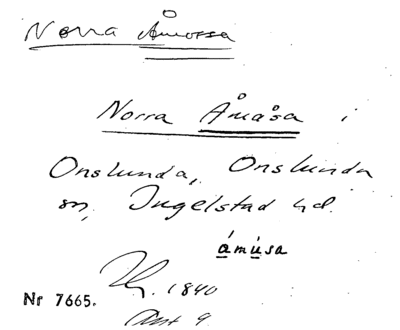 Norra Åmossa
Norra Åmåsa i
Onslunda, Onslunda
sn, Ingelstad hd.
ámúsa
1840
Nr 7665.